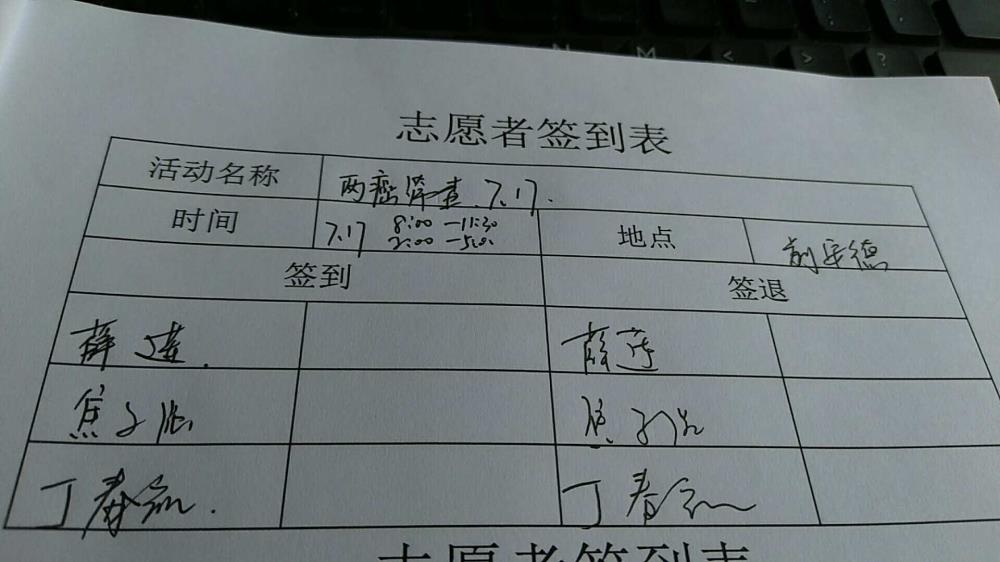 N M < > ?
志愿者签到表
活动名称 两癌筛查 7.17.
时间 7.17 8:00-11:30 地点 前安德
2:00-5:00
签到 签退
薛莲. 薛莲
焦子 焦子
丁春 丁春
志愿者签到表